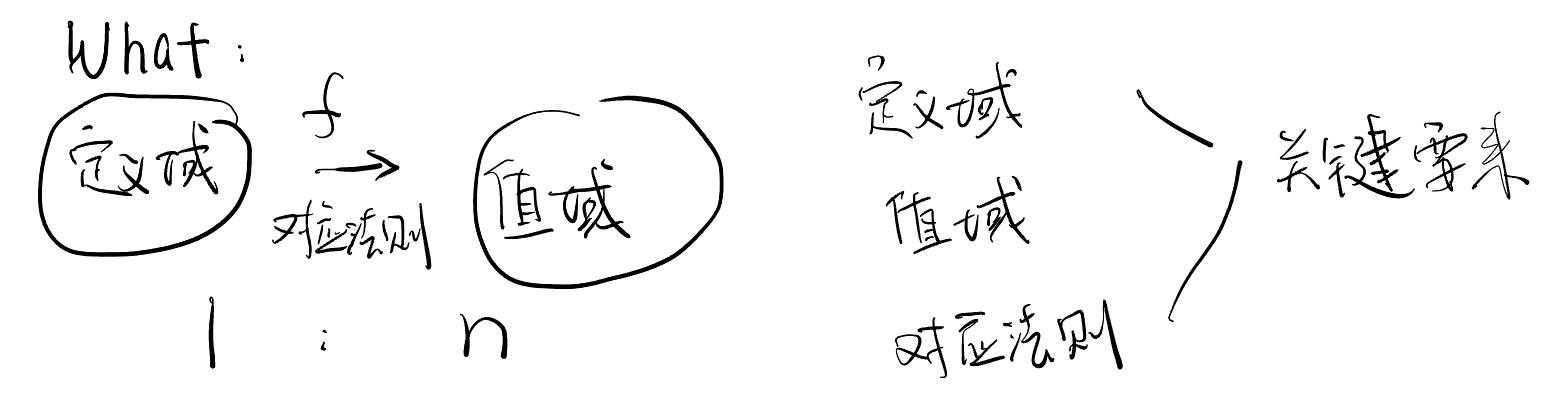 What:
f
定义域 → 值域
对应法则
1 : n
定义域
值域
对应法则
关键要素